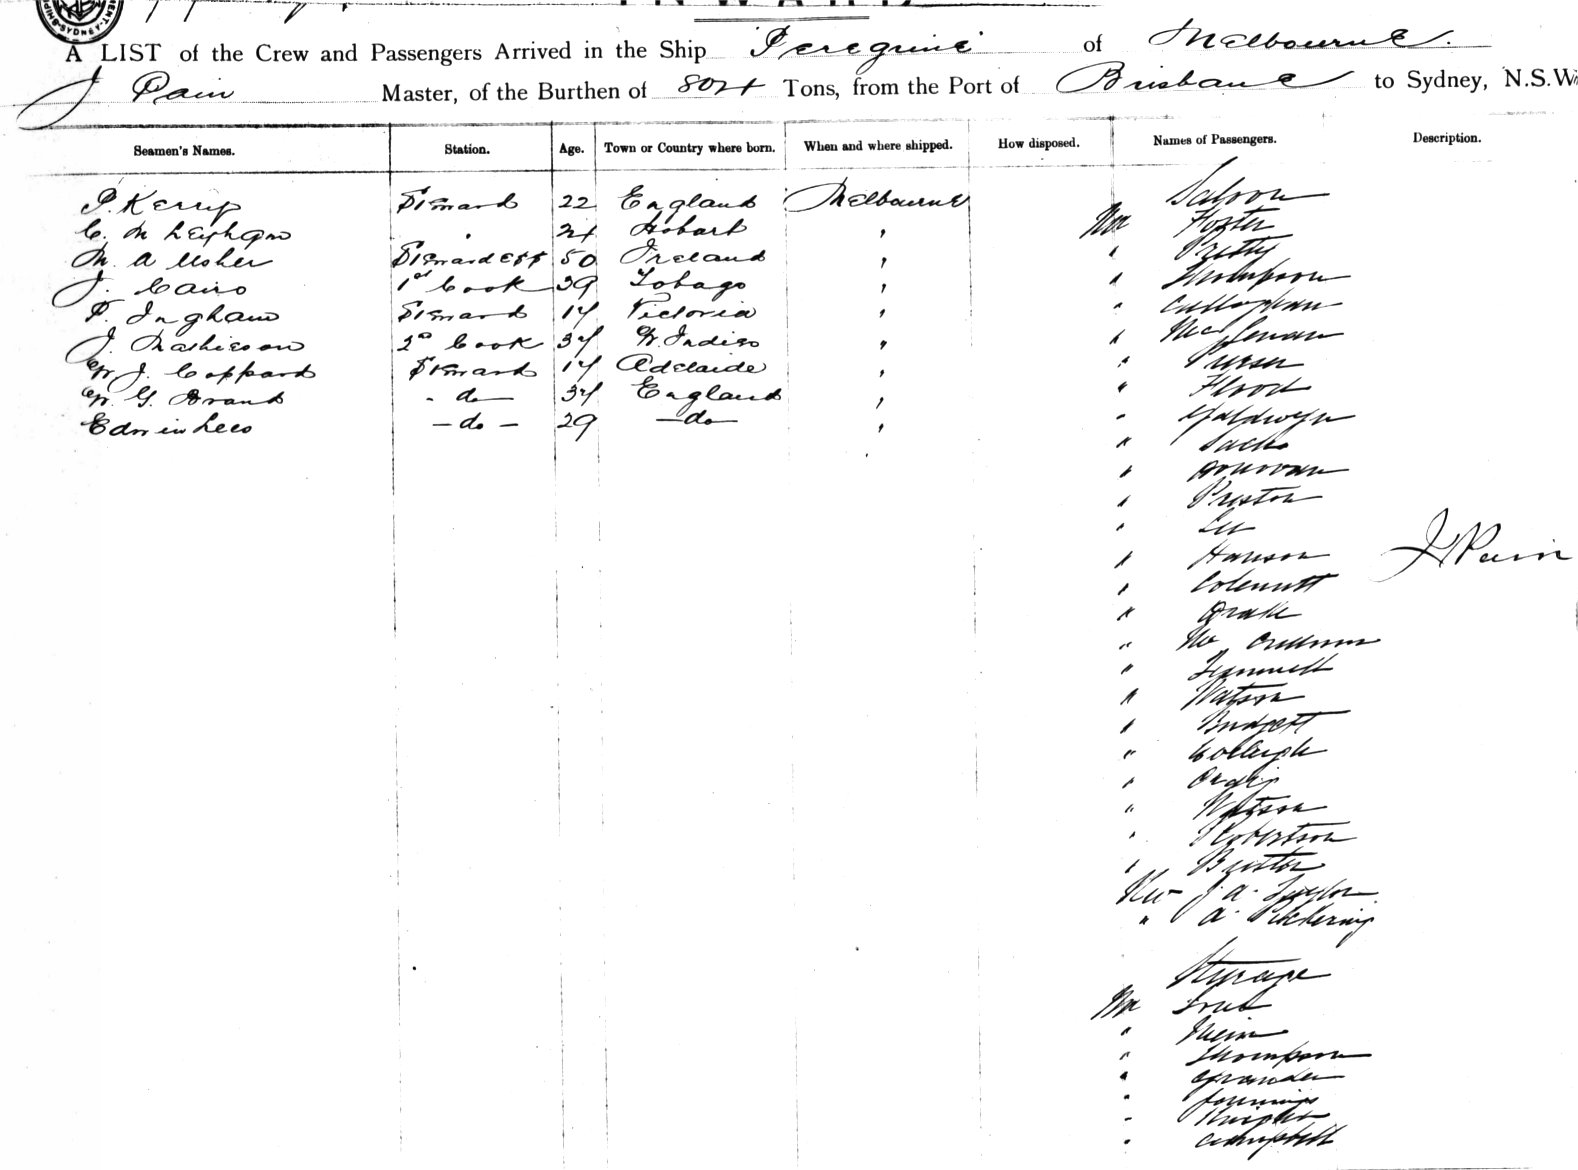 INWARD
A LIST of the Crew and Passengers Arrived in the Ship Peregrine of Melbourne.
J Pain Master, of the Burthen of Tons, from the Port of Brisbane to Sydney, N.S.W
Seamen's Names. Station. Age. Town or Country where born. When and where shipped. How disposed. Names of Passengers. Description.
Saloon
P. Kerrip Steward 22 England Melbourne
Mr Foster
C. M Leighan " Hobart "
" Pretty
M. A Usher Stewardess 50 Ireland "
" Thompson
J. Cairo 1st Cook 39 Tobago "
" Callaghan
F. Ingham Steward Victoria "
J. Mathieson 2nd Cook W. Indies "
" Purser
W. J. Coppard Steward Adelaide "
" Flood
W. G. Brand - do - England "
" Galdwyn
Edwin Lees - do - 29 - do - "
" Sachs
" Donovan
" Preston
" Lee
" Hanson J Pain
" Colcutt
" Drake
" Mc
" Trammell
" Watson
" Budgett
" Colleigh
"
" Watson
" Robertson
" Buxton
Rev J. A. Taylor
" A. Pickering
Steerage
Mr
"
" Thompson
" Grander
" Jennings
" Knight
" Campbell